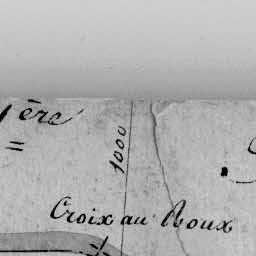 1ère
1000
Croix au Roux